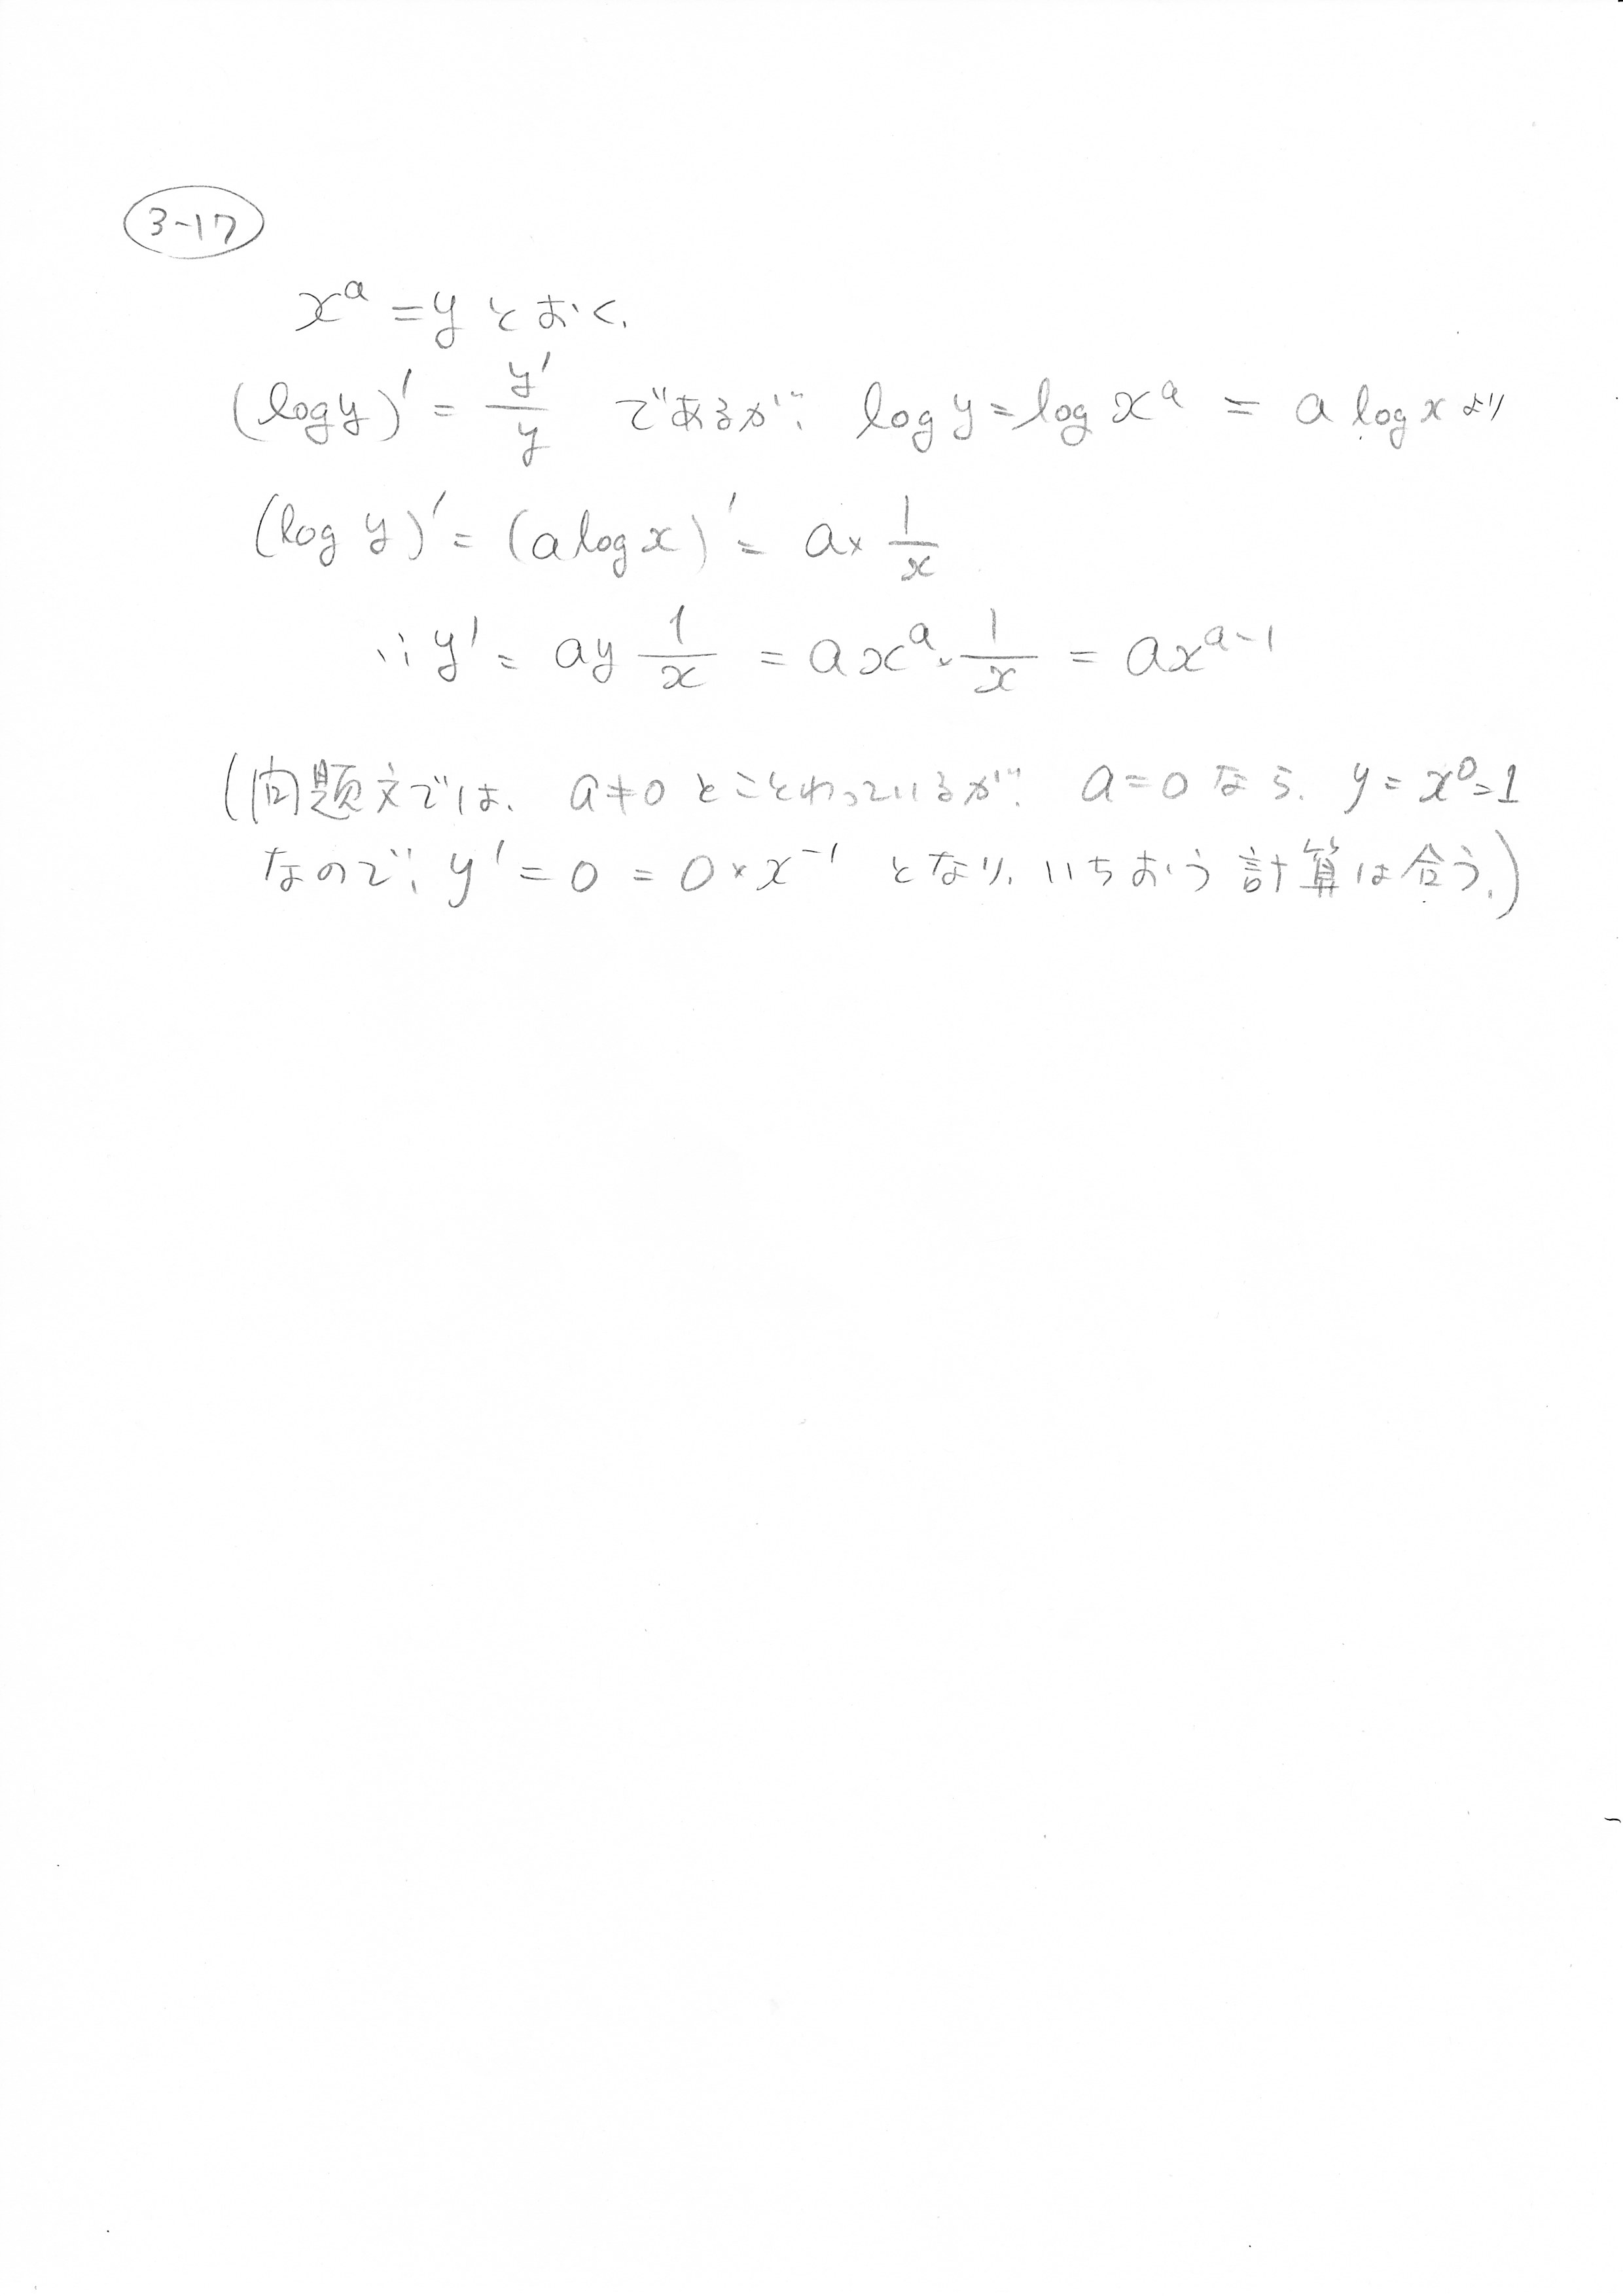 3-17
x^a = y とおく.
(log y)' = y'/y であるが、 log y = log x^a = a log x より
(log y)' = (a log x)' = a × 1/x
∴ y' = ay 1/x = ax^a × 1/x = ax^{a-1}
(問題文では、 a≠0 とことわっているが、 a=0 なら、 y = x^0 = 1
なので、 y' = 0 = 0 × x^{-1} となり、いちおう計算は合う.)